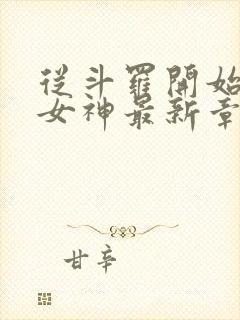 從斗羅開始
女神最新章
甘辛